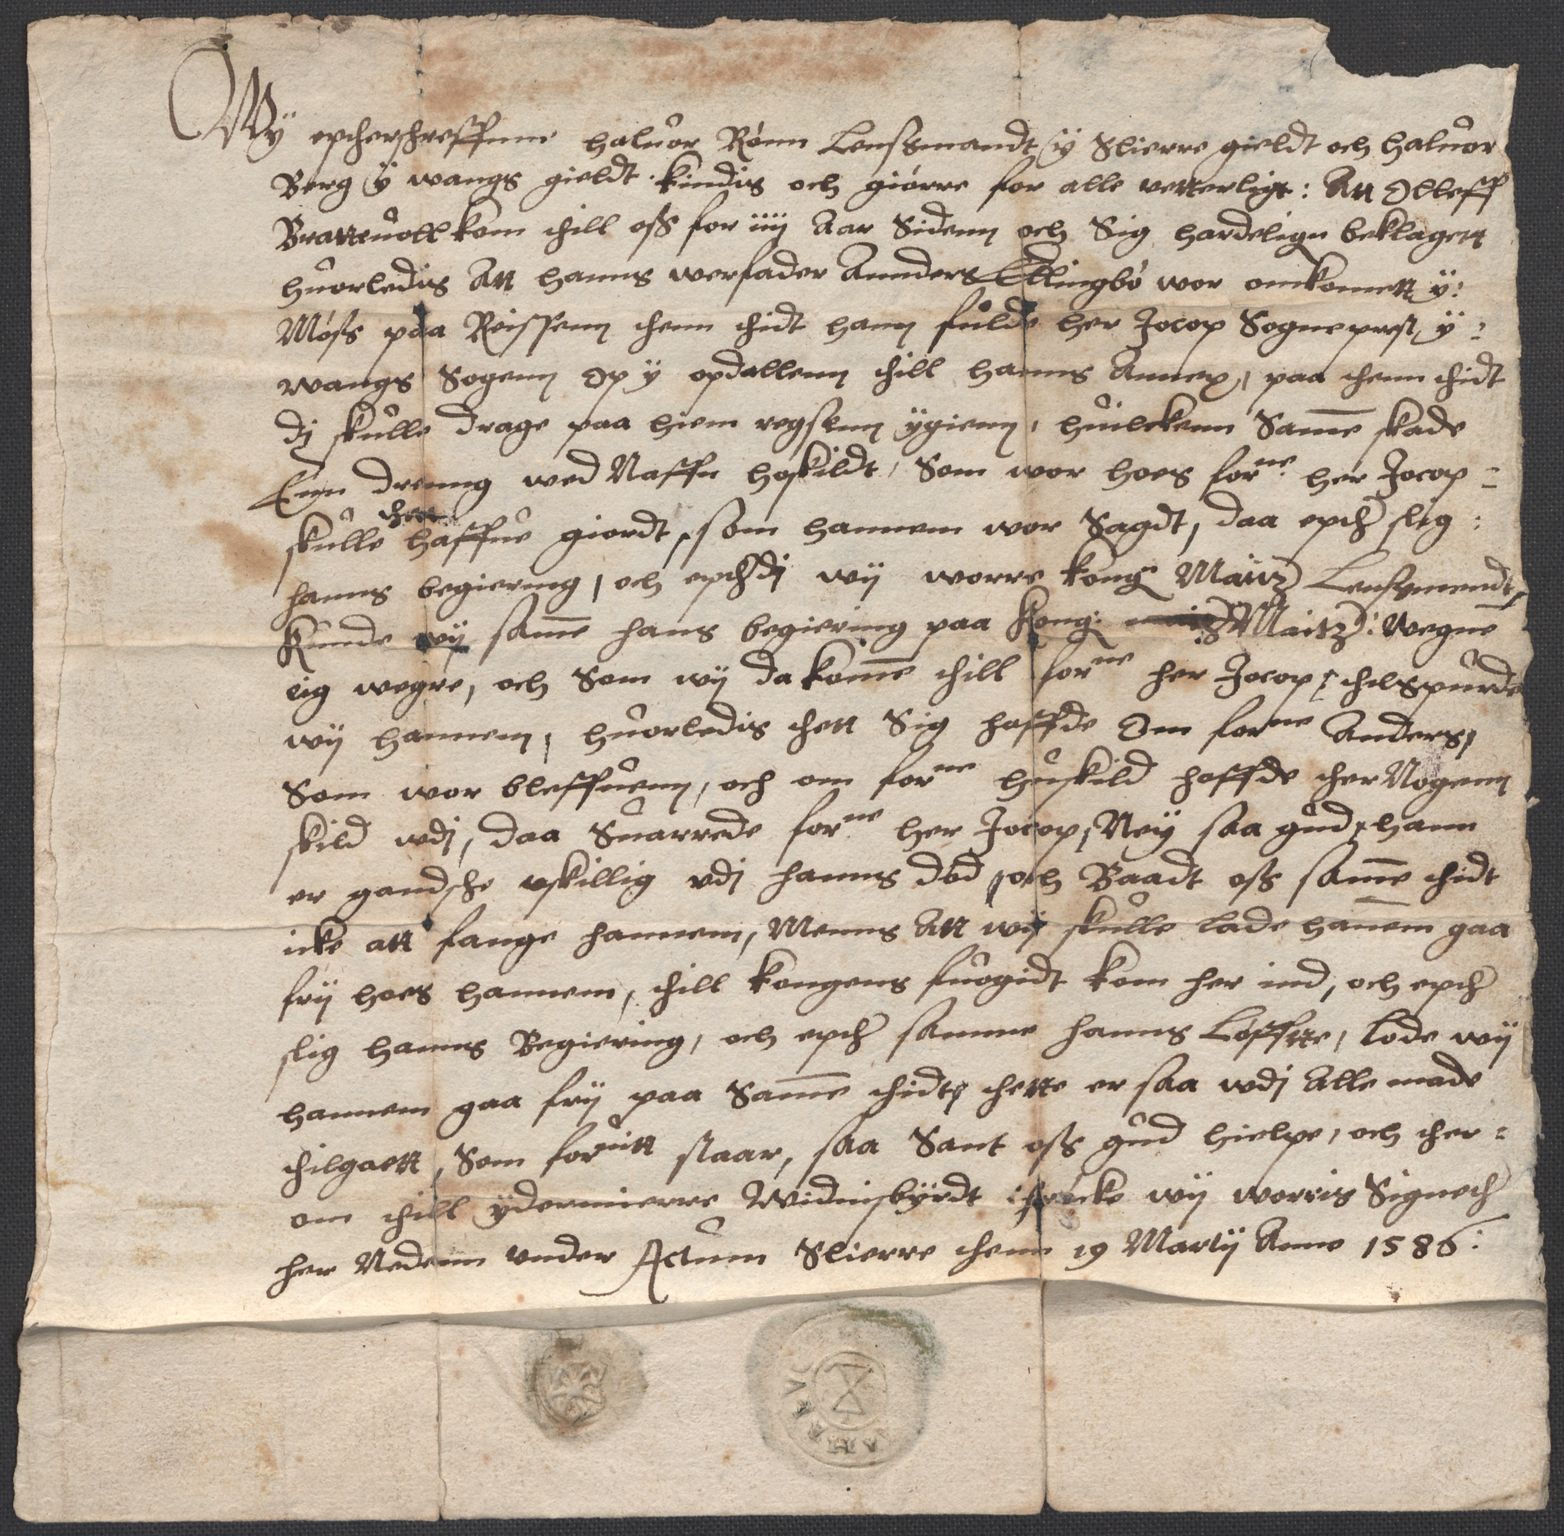 Wy epther schreffnne haluor Rönn Lenssmandt y Slierre gieldt och haluor
Berg y wangs gieldt kindis och giörre for alle vetterligt: Att Olleff
Bratteuoll kom thill oss for iiij Aar Sidenn och Sig hardelign beklagett
huorledis Att hanns werfader Annders Ellingbö wor omkomett y:
Moss paa Reissenn thenn thidt hann fulde her Jocop Sogneprest y:
wangs Sogenn Op y opdallenn thill hanns Annex, paa thenn thidt
dj skulle drage paa hiem regsenn ygienn, huilckenn Same skade
Enn dreng wed Naffn hoskildt, Som wor hoes forne her Jocop-
skulle thett haffue giordt, som hannem wor Sagdt, daa epther slig:
hanns begiering, och epther dj wij worre kong Maitz Lenssmendt,
Kunde wij same hans begiering paa Kong: Maitz: Wegne
eig wegre, och Som wij da kome thill forne her Jocop, thilspurde
wij hannem, huorledis thett Sig haffde Om forne Anders,
Som wor bleffuenn, och om forne huskild haffde ther Nogenn
skild wdj, daa Suarrede forne her Jocop, Ney saa gud, hann
er gandsche uskillig udj hanns död, och Baadt oss same thidt
icke att fange hannem, Menns Att wij skulle lade hanem gaa
frij hoes hannem, thill kongens fuogidt kom her ind, och epther
slig hanns Begiering, och epther samme hanns Löffte, lode wij
hannem gaa frij paa Same thidt, thette er saa wdj Alle made
thilgaett, Som foruitt staar, saa Sant oss gud hielpe, och ther-
om thill ydermierre Widnisbyrdt thröcke wij worris Signether
her Nedenn under Actum Slierre thenn 19 Martij Anno 1586: